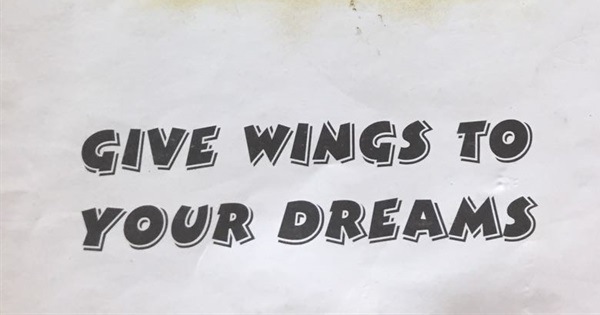 GIVE WINGS TO
YOUR DREAMS